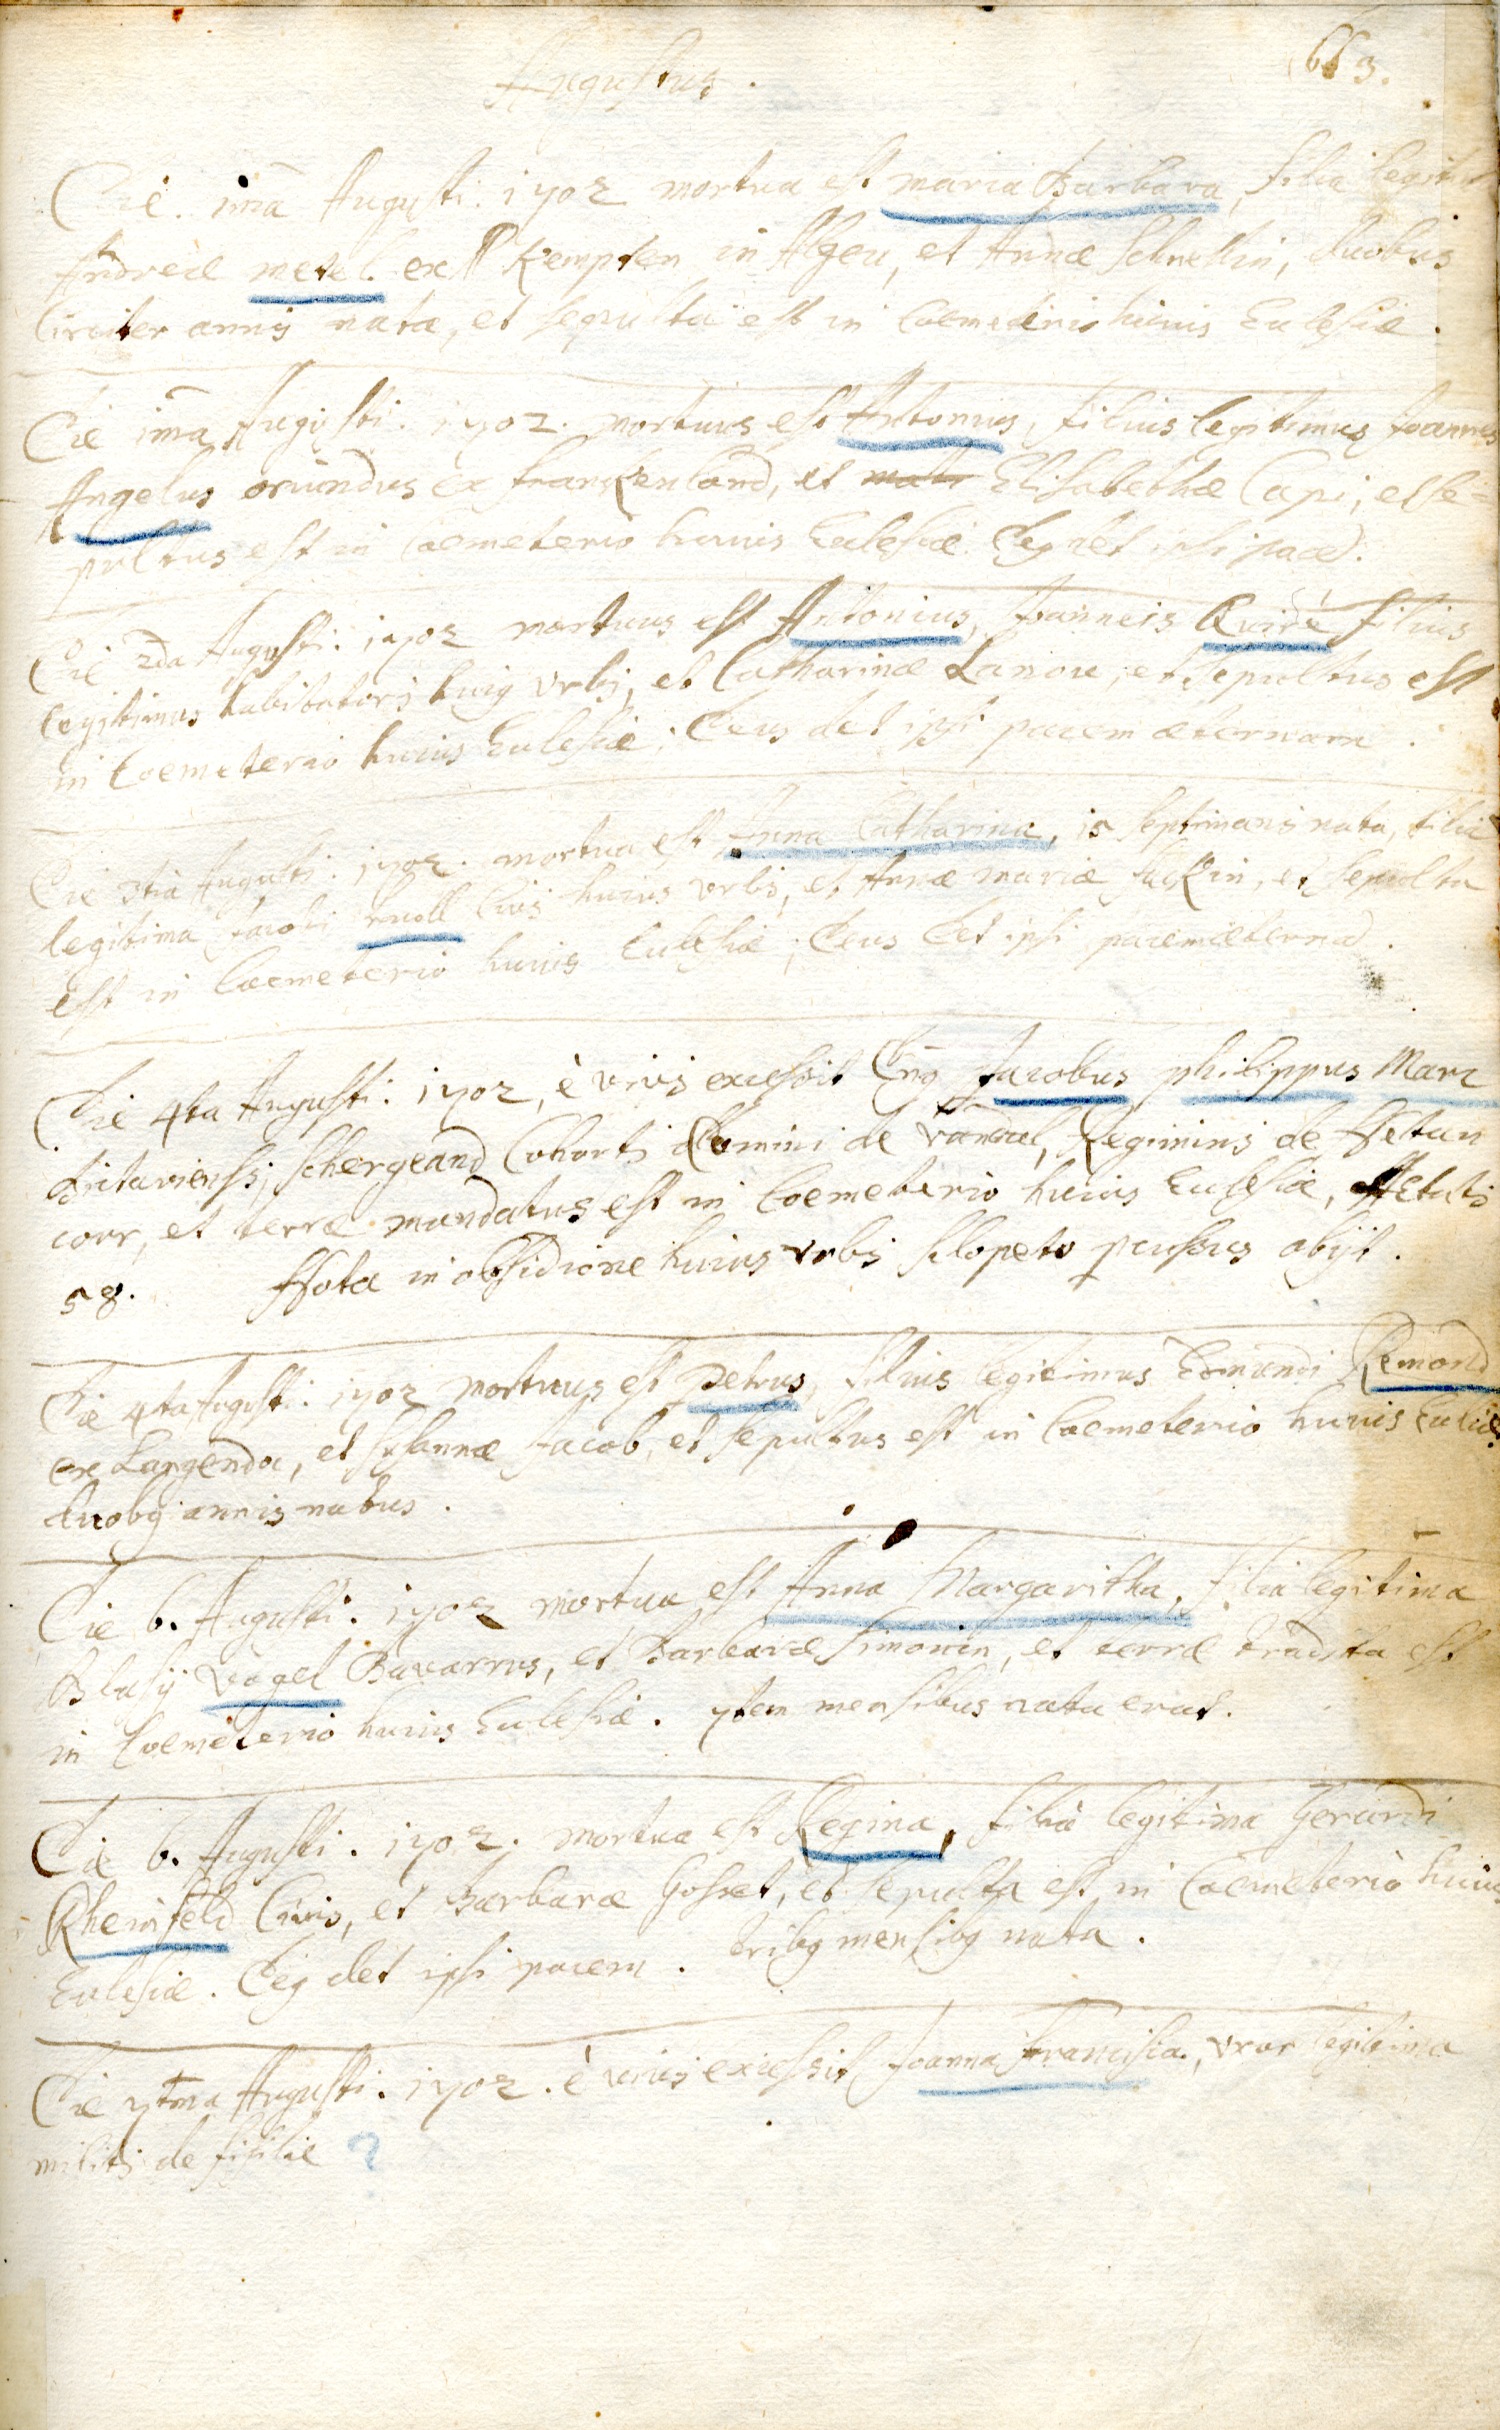 Augustus.
663.
Die. 1mā Augusti. 1702 mortua est Maria Barbara, filia legitima
Andreæ Metel ex Kempten in Algeu, et Annæ Schnellin, duobus
Circiter annis nata, et sepulta est in Coemeterio huius Eclesiæ.
Die 1mā Augusti. 1702. mortuus est Antonius, filius legitimus Joannes
Angelus oriundus ex frankenland, et Elisabethæ Capi, et se=
pultus est in Coemeterio huius Eclesiæ. Deus det ipsi pacē.
Die 2da Augusti. 1702 mortuus est Antonius, Joanneis Quirè filius
legitimus habitatoris huig Vrbis, et Catharinæ Lanoue, et sepultus est
in Coemeterio huius Eclesiæ; Deus det ipsi pacem æternam.
Die 3tia Augusti. 1702. mortua est Anna Catharina, 15 septimanis nata, filia
legitima Jacobi knoll Civis huius Vrbis, et Annæ Mariæ, et sepulta
est in Coemeterio huius Eclesiæ; Deus det ipsi pacem æternā.
Die 4ta Augusti. 1702, è vivis excessit Dng Jacobus philippus Marc
pictaviensis, Schergeand Cohortis Domini de Vandel, Regiminis de
corr, et terræ mandatus est in Coemeterio huius Eclesiæ, Ætatis
58. Nota in obsidione huius Vrbis sclopeto percussus obijt.
Die 4ta Augusti. 1702 mortuus est Petrus, filius legitimus Edmundi Remond
ex Langendoc, et Susannæ Jacob, et sepultus est in Coemeterio huius Ecliæ
duobg annis natus.
Die 6. Augusti. 1702 mortua est Anna Margaritha, filia legitima
Blasij Vogel Bavarrus, et Barbaræ Simonin, et terræ tradita est
in Coemeterio huius Eclesiæ. 7tem mensibus nata erat.
Die 6. Augusti. 1702. mortua est Regina, filia legitima Gerardi
Rheinfeld Civis, et Barbaræ Gosset, et sepulta est in Coemeterio huius
Eclesiæ. Deg det ipsi pacem. tribg mensibg nata.
Die 7tma Augusti. 1702. è vivis excessit Joanna Francisca, Vxor legitima
militis de ?